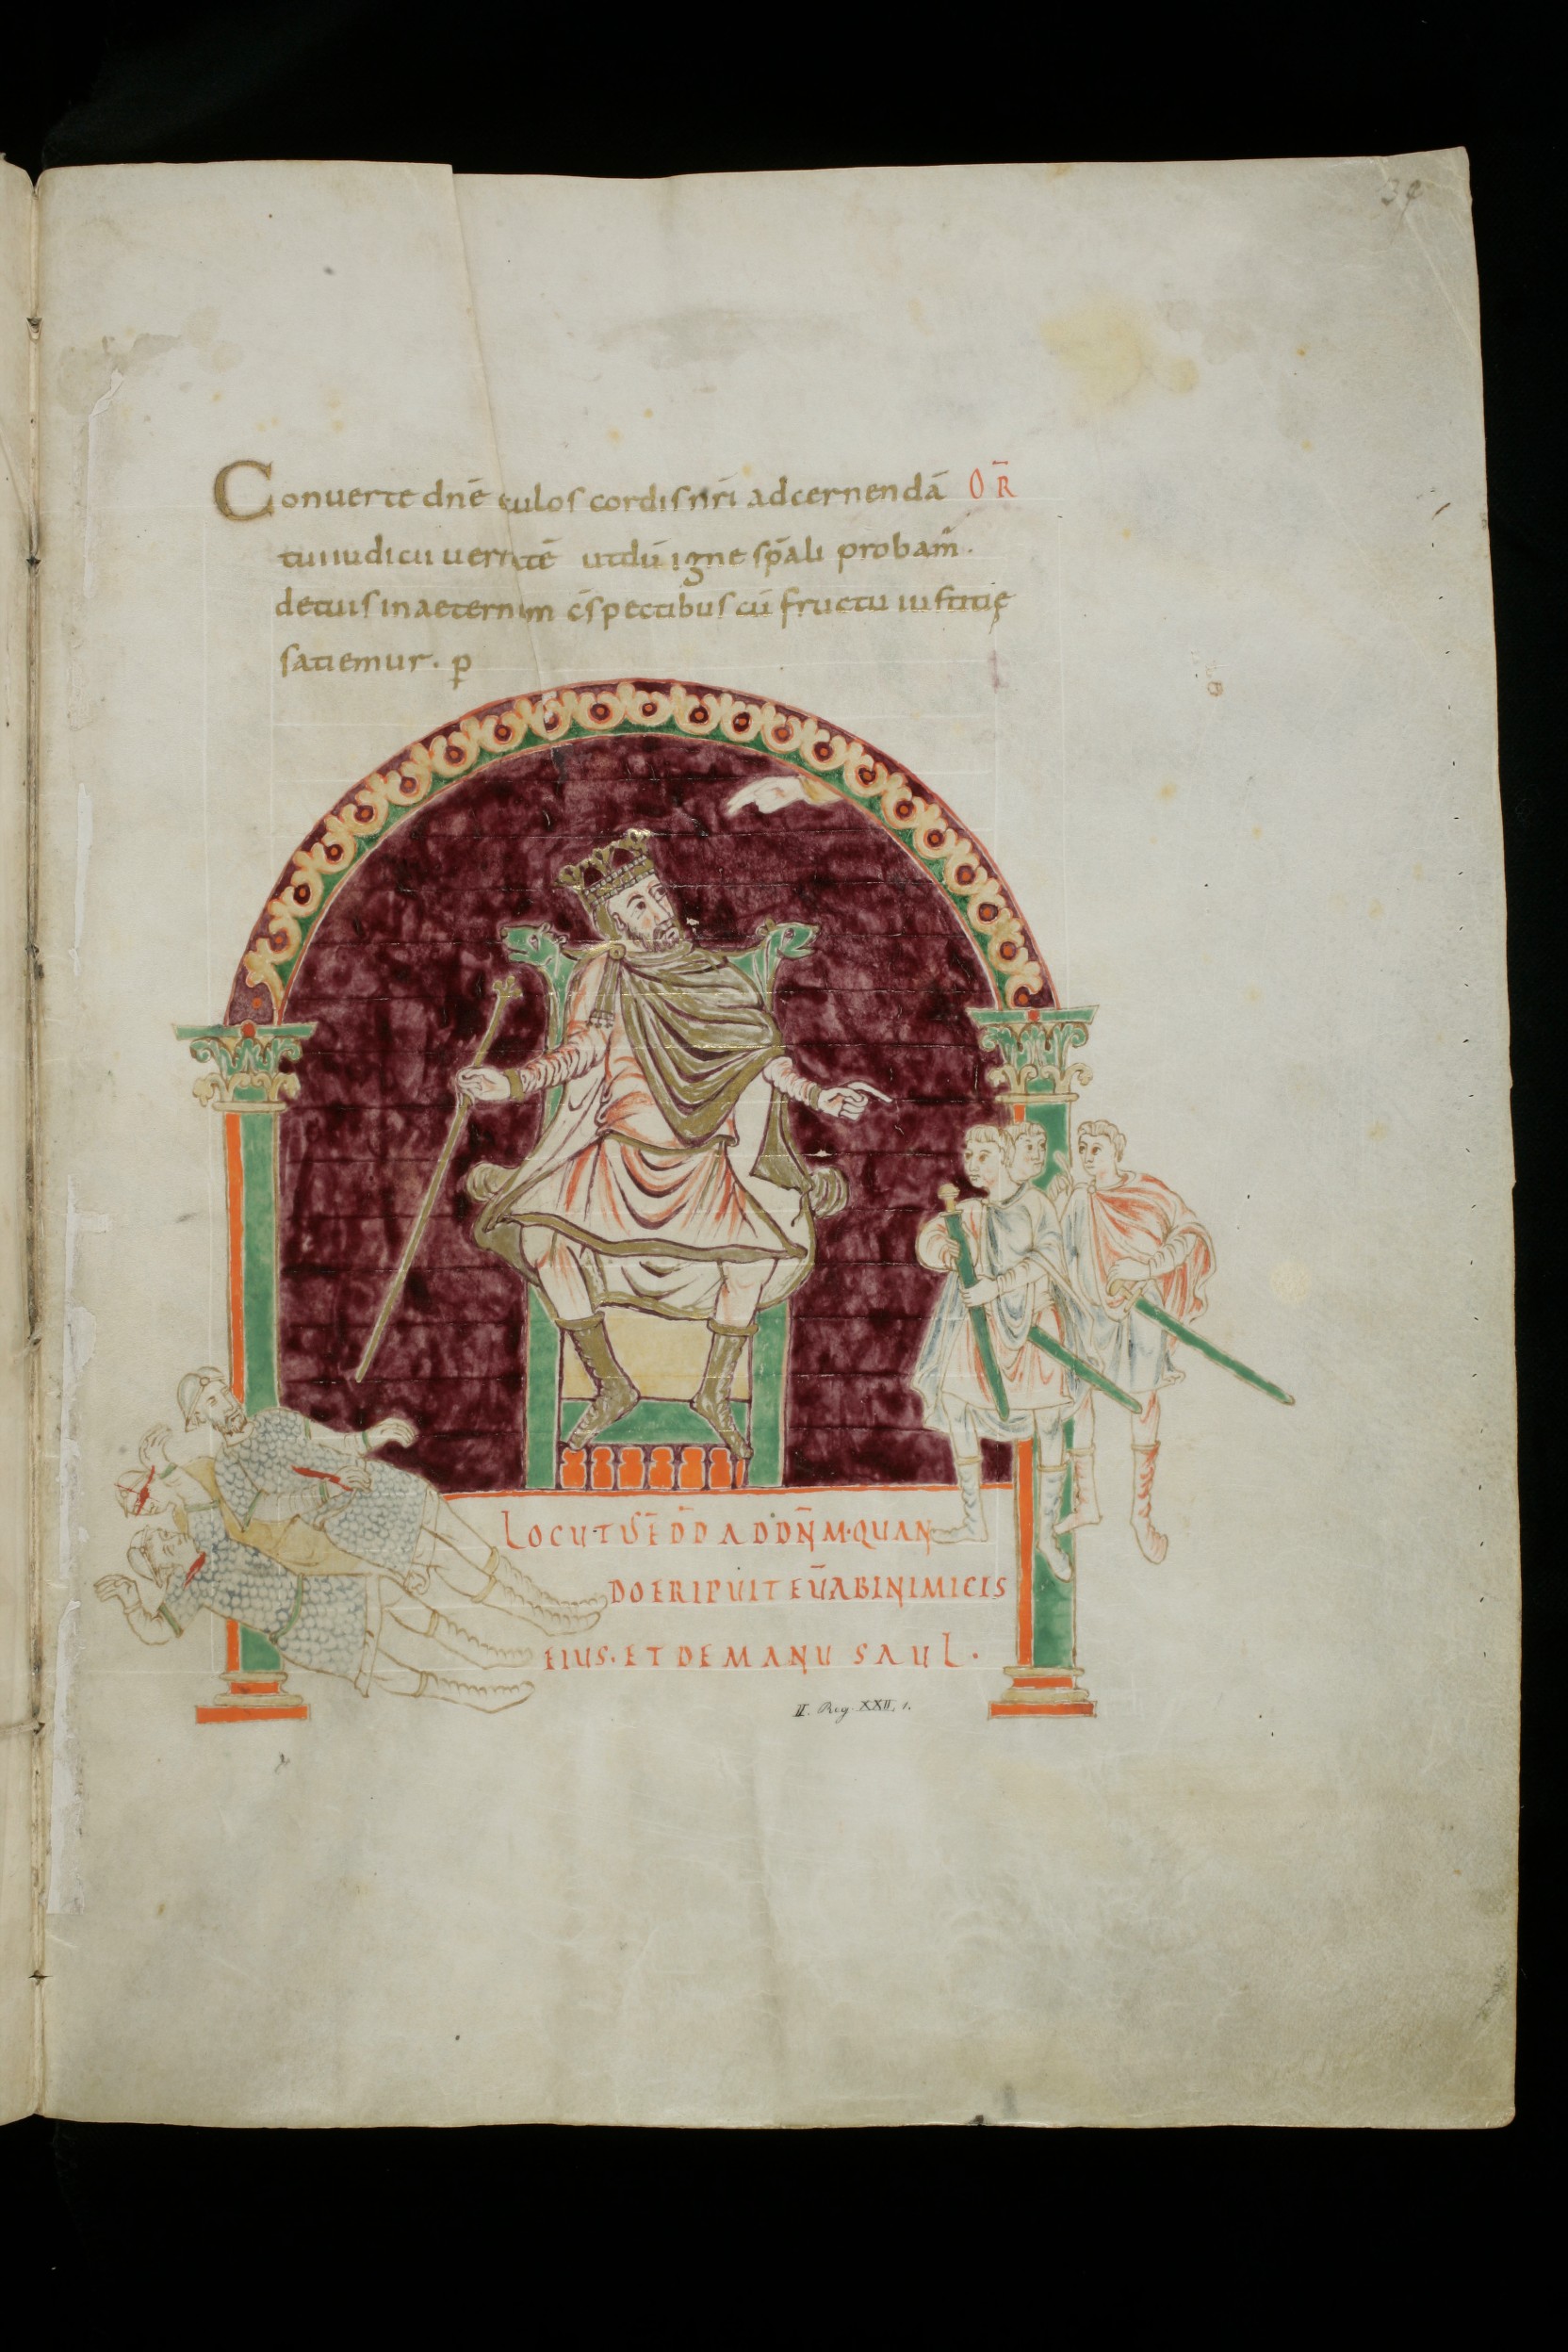 39
Conuerte dnē oculos cordis nr̄i ad cernendā OR̄
tui iudicii ueritatē ut dū igne sp̄ali probam̄.
de tuis in aeternum c̄spectibus cū fructu iustitię
satiemur. p
LOCUTUS Ē DD̄ AD DN̄M·QUAN
DO ERIPUIT EŪ AB INIMICIS
EIUS·ET DE MANU SAUL.
II. Reg. XXII, 1.